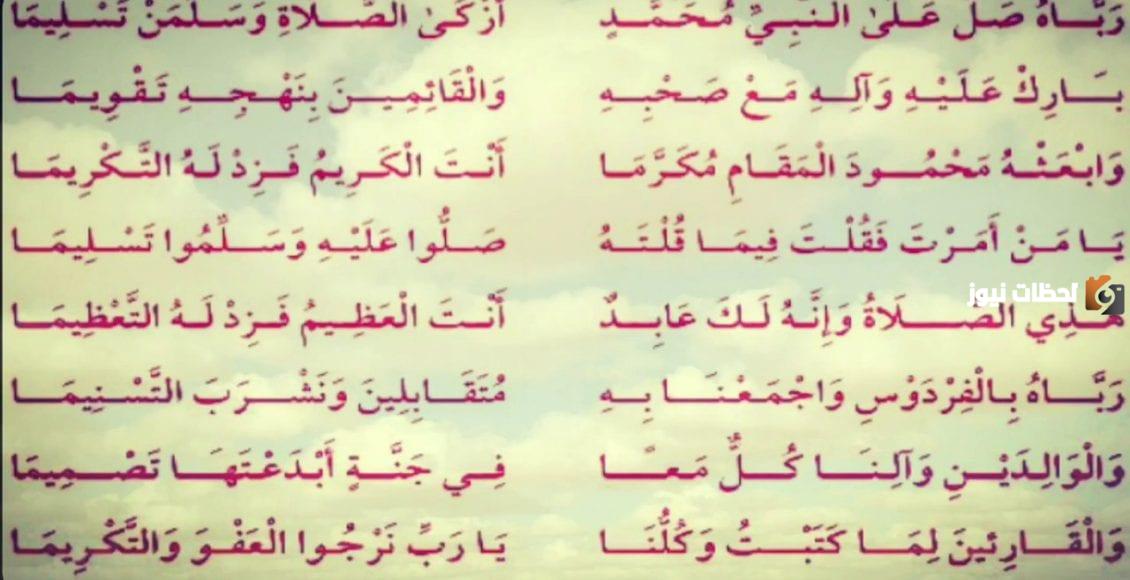 رَبَّاهُ صَلِّ عَلَىٰ النَّبِيِّ مُحَمَّدٍ أَزْكَىٰ الصَّلَاةِ وَسَلِّمَنْ تَسْلِيمَا
بَارِكْ عَلَيْهِ وَآلِهِ مَعْ صَحْبِهِ وَالْقَائِمِينَ بِنَهْجِهِ تَقْوِيمَا
وَابْعَثْهُ مَحْمُودَ الْمَقَامِ مُكَرَّمَا أَنْتَ الْكَرِيمُ فَزِدْ لَهُ التَّكْرِيمَا
يَا مَنْ أَمَرْتَ فَقُلْتَ فِيمَا قُلْتَهُ صَلُّوا عَلَيْهِ وَسَلِّمُوا تَسْلِيمَا
هَذِي الصَّلَاةُ وَإِنَّهُ لَكَ عَابِدٌ أَنْتَ الْعَظِيمُ فَزِدْ لَهُ التَّعْظِيمَا
لحظات نيوز
رَبَّاهُ بِالْفِرْدَوْسِ وَاجْمَعْنَا بِهِ مُتَقَابِلِينَ وَنَشْرَبَ التَّسْنِيمَا
وَالْوَالِدَيْنِ وَآلِنَا كُلٌّ مَعًا فِي جَنَّةٍ أَبْدَعْتَهَا تَصْمِيمَا
وَالْقَارِئِينَ لِمَا كَتَبْتُ وَكُلُّنَا يَا رَبِّ نَرْجُوا الْعَفْوَ وَالتَّكْرِيمَا